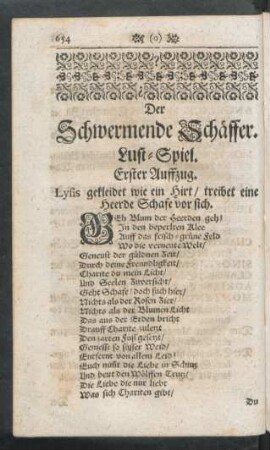 654 (o)
Der
Schwermende Schäffer.
Lust-Spiel.
Erster Auffzug.
Lysis gekleidet wie ein Hirt/ treibet eine
Heerde Schafe vor sich.
GEh Blum der Heerden geh/
In den beperlten Klee
Auff das frisch-grüne Feld
Wo die verneinte Welt/
Geneust der güldnen Zeit/
Durch deine Freundligkeit/
Charite du mein Licht/
Und Seelen Zuversicht/
Geht Schafe! doch sich hier/
Nichts als der Rosen Zier/
Nichts als der Blumen Licht
Das aus der Erden bricht
Drauff Charite zuletzt
Den zarten Fuß gesetzt/
Geniesst so süsser Weid/
Entfernt von allem Leid/
Euch nimt sie in Schutz
Und beut den Wölffen Trutz/
Die Liebe die nur liebt
Was sich Chariten gibt/
Du